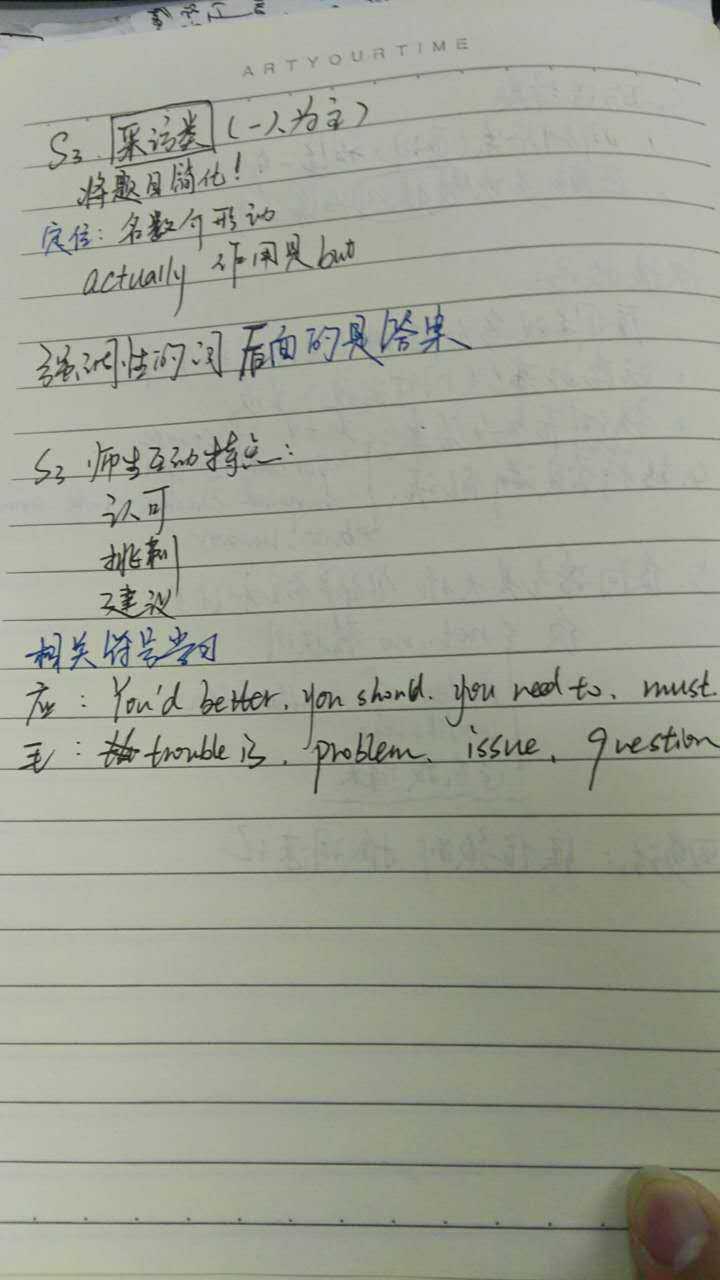 ARTYOURTIME
S3. 采访类 (一人为主)
将题目简化!
定位: 名数个形动
actually 作用是but
强调性的词后面的是答案
S3 师生互动特点:
认可
挑刺
建议
相关符号学习
应: You'd better. you should. you need to. must.
毛: trouble is. problem. issue. question